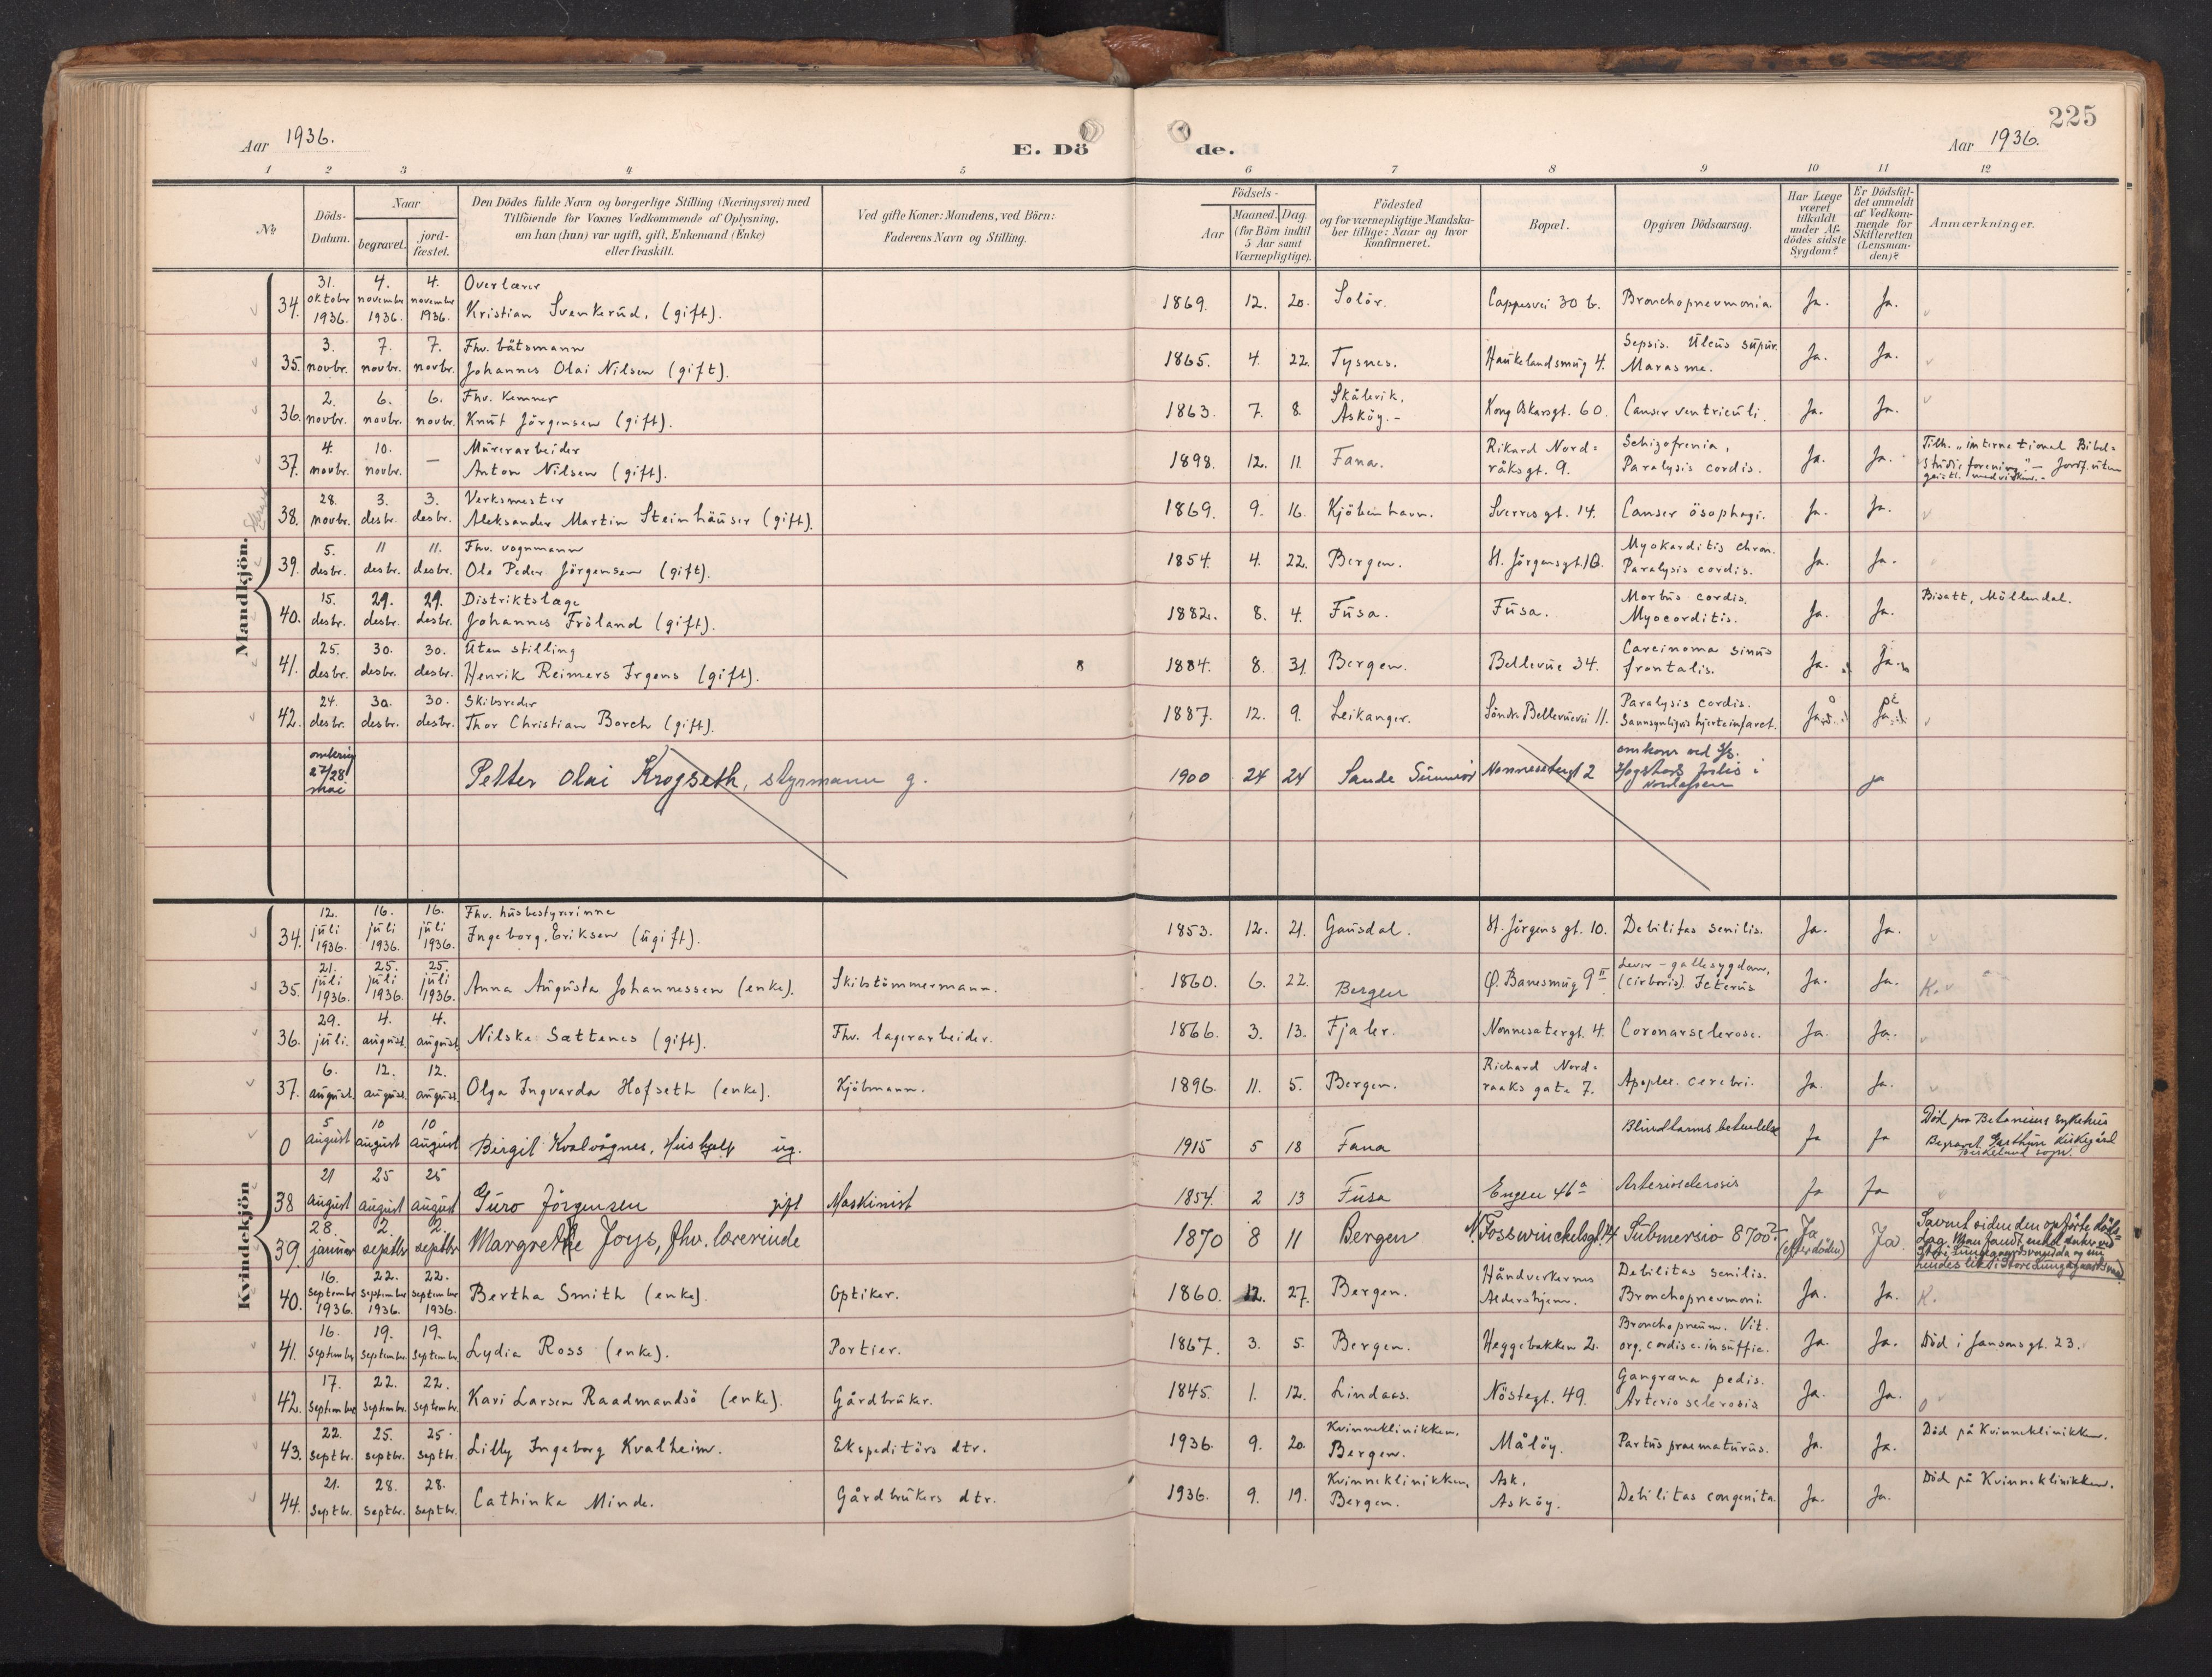 225
Aar 1936.
E. Dö de.
Aar 1936.
1 2 3 4 5 6 7 8 9 10 11 12
№
Döds-Datum.
Naar
begravet.
jord-fæstet.
Den Dödes fulde Navn og borgerlige Stilling (Næringsvei) med
Tilföiende for Voxnes Vedkommende af Oplysning,
om han (hun) var ugift, gift, Enkemand (Enke)
eller fraskilt.
Ved gifte Koner: Mandens, ved Börn:
Faderens Navn og Stilling.
Födsels-
Aar
Maaned. Dag.
(for Börn indtil
5 Aar samt
Værnepligtige).
Födested
og for værnepligtige Mandska-
ber tillige: Naar og hvor
konfirmeret.
Bopæl.
Opgiven Dödsaarsag.
Har Læge
været
tilkaldt
under Af-
dödes sidste
Sygdom?
Er Dödsfal-
det anmeldt
af Vedkom-
mende for
Skifteretten
(Lensman-
den)?
Anmærkninger.
Mandkjön.
34. 31. oktober 1936. 4. november 1936. 4. november 1936. Overlærer
Kristian Svenkerud. (gift). 1869. 12. 20. Solör. Cappesvei 30 b. Bronchopneumonia. Ja. Ja.
35. 3. novbr. 7. novbr. 7. novbr. Fhv. båtsmann
Johannes Olai Nilsen (gift). 1865. 4. 22. Tysnes. Haukelandsmug 4. Sepsis. Ulcus supur.
Marasme. Ja. Ja.
36. 2. novbr. 6. novbr. 6. novbr. Fhv. kemner
Knut Jörgensen (gift). 1863. 7. 8. Skålevik,
Asköy.- Kong Oskarsgt. 60. Canser ventriculi. Ja. Ja.
37. 4. novbr. 10. novbr. — Murerarbeider
Anton Nilsen (gift). 1898. 12. 11. Fana. Rikard Nord=
råksgt. 9. Schizofrenia,
Paralysis cordis. Ja. Ja. Tilh. „internationel Bibel=
studieforening". — Jordf. uten
geistl. medvirkn.-
38. 28. novbr. 3. desbr. 3. desbr. Verksmester
Aleksander Martin Steinhäuser (gift). 1869. 9. 16. Kjöbenhavn. Sverresgt. 14. Canser ösophagi. Ja. Ja.
39. 5. desbr. 11 desbr. 11. desbr. Fhv. vognmann
Ole Peder Jörgensen (gift). 1854. 4. 22. Bergen. St. Jörgensgt. 10. Myokarditis chron.
Paralysis cordis. Ja. Ja.
40. 15. desbr. 29. desbr. 29. desbr. Distriktslæge
Johannes Fröland (gift). 1882. 8. 4. Fusa. Fusa. Morbus cordis.
Myocorditis. Ja. Ja. Bisatt, Möllendal.
41. 25. desbr. 30. desbr. 30. desbr. Uten stilling
Henrik Reimers Irgens (gift). 1884. 8. 31. Bergen. Bellevue 34. Carcinoma sinus
frontalis. Ja. Ja.
42. 24. desbr. 30. desbr. 30. desbr. Skibsreder
Thor Christian Borch (gift). 1887. 12. 9. Leikanger. Söndr. Bellevuevei 11. Paralysis cordis.
Sannsynligvis hjerteinfarct. Ja. Ja.
omkring 27/28. mai Petter Olai Krogseth, styrmann g. 1900 24 24 Sande Sunnmör Nonnesetergt 2 omkom ved S/S.
forlis i
Nordsjøen ja
Kvindekjön
34. 12. juli 1936. 16. juli 1936. 16. juli 1936. Fhv. husbestyrerinne
Ingeborg Eriksen (ugift). 1853. 12. 21. Gausdal. St. Jörgens gt. 10. Debilitas senilis. Ja. Ja.
35. 21. juli 1936. 25. juli 1936. 25. juli 1936. Anna Augusta Johannessen (enke). Skibstömmermann. 1860. 6. 22. Bergen Ø. Banesmug 9 II Lever-gallesygdom,
(cirhoris). Icterus Ja. Ja. K.
36. 29. juli. 4. august. 4. august. Nilske Sættenes (gift). Fhv. lagerarbeider. 1866. 3. 13. Fjaler. Nonnesetergt. 4. Coronarsclerose. Ja. Ja.
37. 6. august. 12. august. 12. august. Olga Ingvarda Hofseth (enke). Kjöbmann. 1896. 11. 5. Bergen. Richard Nord=
raaks gate 7. Apoplex. cerebri. Ja. Ja.
0 5 august 10 august 10 august Birgit Kvalvågnes, Hushjelp ug. 1915 5 18 Fana Blindtarms betendelse Ja Ja Död paa Betaniens sykehus
Begravet kirkegård
Birkeland sogn.
38 21 august 25 august 25 august Guro Jörgensen gift Maskinist 1854. 2 13 Fusa Engen 46a Arteriosclerosis Ja Ja
39. 28. januar 2. septbr 2. septbr Margrethe Joys, fhv. lærerinde 1870 8 11 Bergen N. Fosswinckelsgt. 14 Submersio 8700? Ja
(efter döden) Ja. Savnet siden den opförte döds=
dag. Man fandt enkel
Store Lungegaardsvand da og nu
hendes lik i Store Lungegaardsvand
40. 16. september 1936. 22. september 1936. 22. september 1936. Bertha Smith (enke). Optiker. 1860. 12. 27. Bergen. Håndverkernes
Aldershjem. Debilitas senilis.
Bronchopneumoni. Ja. Ja. K.
41. 16. september. 19. september. 19. september. Lydia Ross (enke). Portier. 1867. 3. 5. Bergen. Heggebakken 2. Bronchopneum. Vit.
org. cordis c. insuffic. Ja. Ja. Död i Jansonsgt. 23.
42. 17. september 22. septembr. 22. september. Kari Larsen Raadmandsö (enke). Gårdbruker. 1845. 1. 12. Lindaas. Nöstegt. 49. Gangræna pedis.
Arterio sclerosis Ja. Ja.
43. 22. septbr. 25. septbr. 25. septbr Lilly Ingeborg Kvalheim. Ekspeditörs dtr. 1936. 9. 20. Kvinneklinikken.
Bergen. Målöy. Partus praematurus. Ja. Ja. Död på Kvinneklinikken.
44. 21. septbr. 28. septbr. 28. septbr. Cathinka Minde. Gårdbrukers dtr. 1936. 9. 19. Kvinneklinikken,
Bergen. Ask,
Asköy. Debilitas congenita. Ja. Ja. Död på Kvinneklinikken.